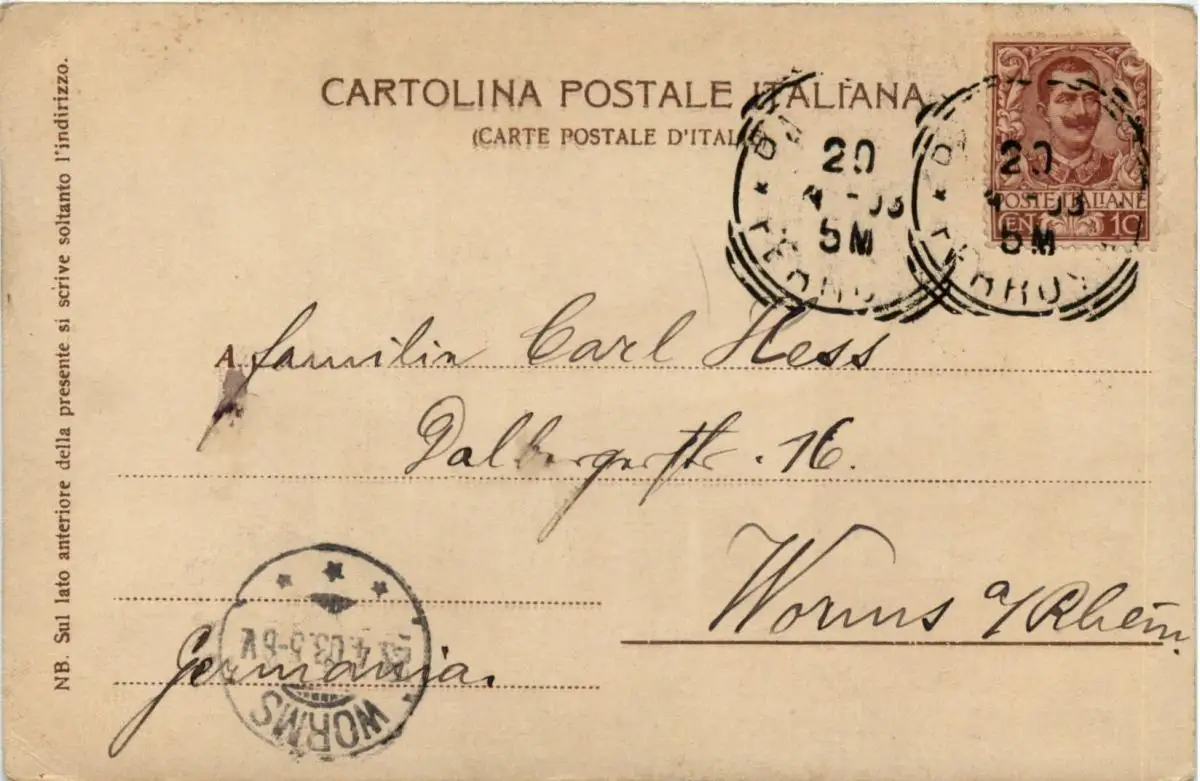 CARTOLINA POSTALE ITALIANA
(CARTE POSTALE D'ITAL
POSTE ITALIANE
CEN. 10
20
4 - 03
5M
FERROV
20
4 - 03
5M
FERROV
A familia Carl Hess
Dalbergerstr. 16.
Worms a/Rhein.
Germania.
4.03.5-6V.
WORMS
NB. Sul lato anteriore della presente si scrive soltanto l'indirizzo.